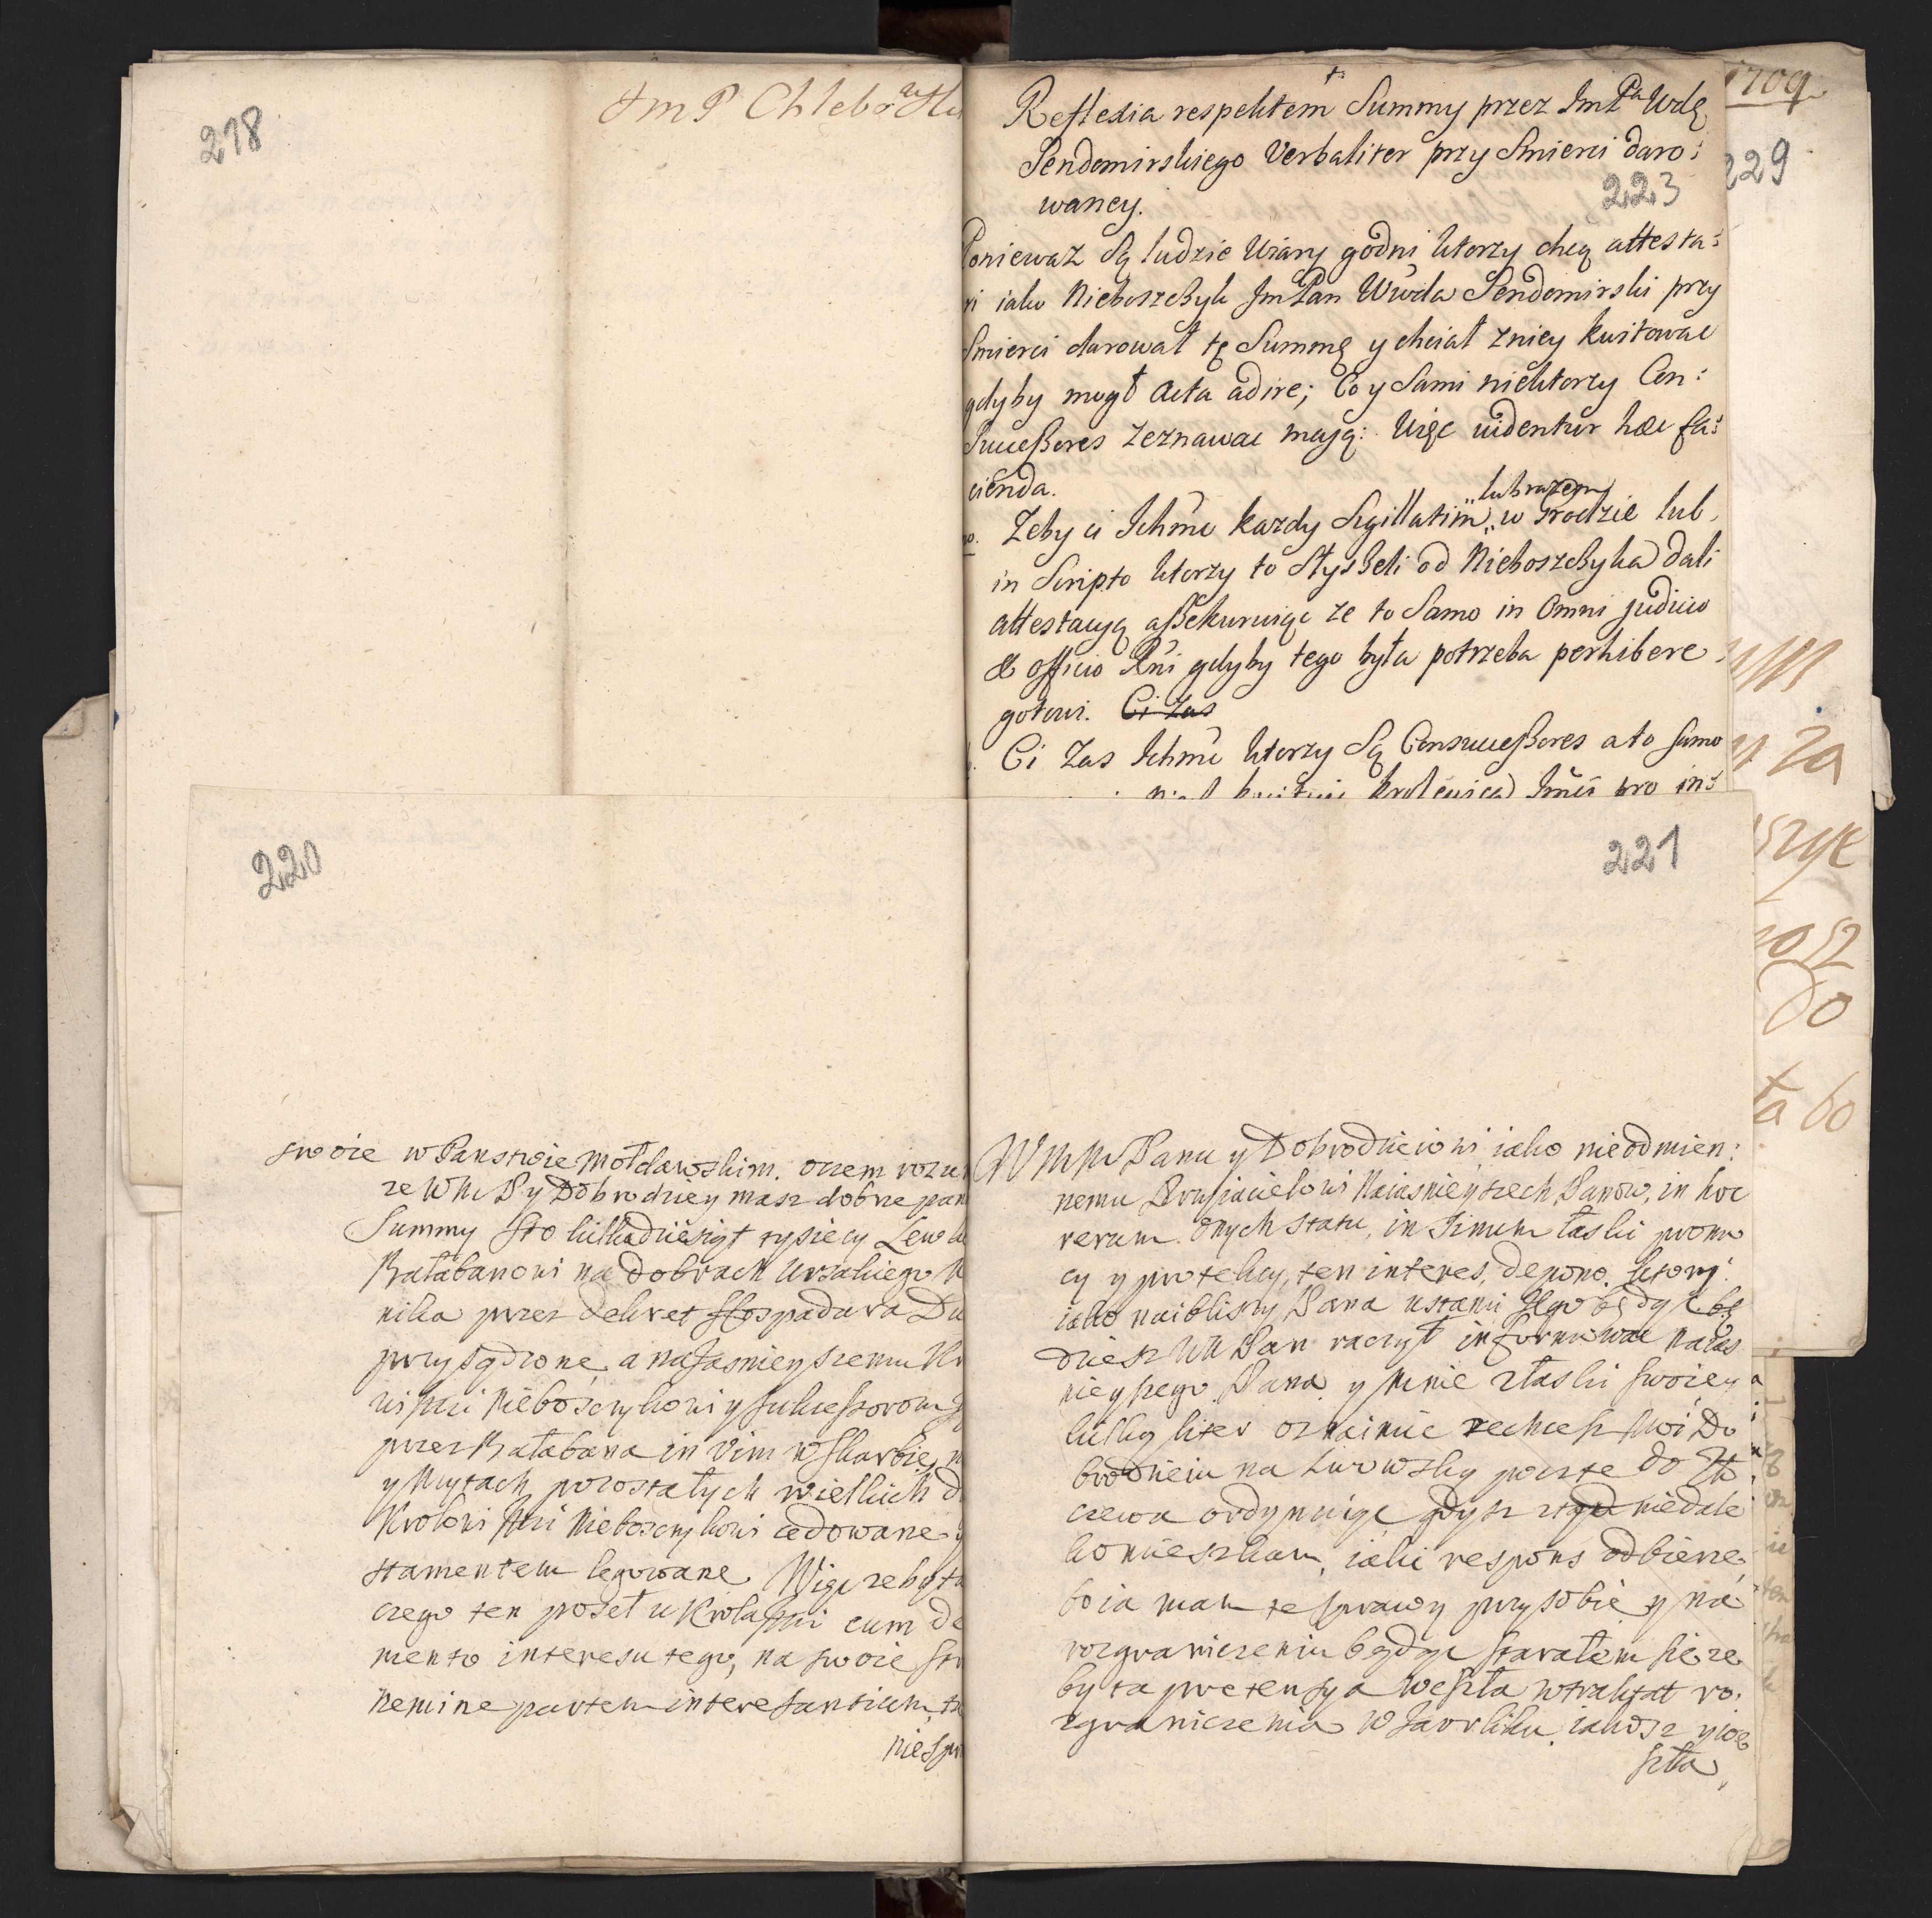 218
Im P Chlebo
Reflexia respektem Summy przez ImPa Wdę
Sendomirskiego Verbaliter przy Smierci daro:
waney.
223
Poniewaz Są ludzie Wiary godni ktorzy chcą attesta:
ri iako Nieboszczyk Jm Pan Wwda Sendomirski przy
Smierci darował tę Summę y chciał zniey kwitowac
gdyby mogł Acta adire; Co y Sami niektorzy Con:
Succeßores zeznawac mają: Więc videntur hæc fa:
cienda.
lub razem
Zeby ci Ichmc kazdy Sigillatim w Grodzie lub
in Scripto ktorzy to Słyszeli od Nieboszczyka dali
attestacyą aßekuruiąc ze to Samo in Omni judicio
& officio Rni gdyby tego była potrzeba perhibere
gotowi. Ci zas
Ci Zas Ichmc ktorzy Są Consucceßores a to Samo
Krolewica Jmci pro in:
1709
229
za
szyc
do
ta bo
220
swoie w Panstwie Mołdawskim. oczem rozu
ze WM P y Dobrodziey masz dobrze pam
Summy Sto kilkadziesiąt tysięcy Lewk
Bałabanowi na dobrach Urzakiego K
nika przez dekret Hospadara Du
przysądzone, a naJasnieyszemu Kr
wi Jmci Nieboszczykowi y sukcessorom J
przez Bałabana in vim w Skarbie, n
y Mytach pozostałych wielkich d
Krolowi Jmci Nieboszczykowi cedowane y
stamentem legowane. Więc zeby ta
czego ten poseł u Krola Jmci cum de
mento interesu tego, na swoie str
nemine partem interesantium, ta
niespr
221
WMM Panu y Dobrodzieiowi iako nieodmien:
nemu Przyiacielowi Naiasnieyszech Panow, in hoc
rerum onych statu, in sinum łaski promo
cy y protekcy, ten interes, depono. ktory
iako naiblizszy Pana ustawicznego będąc bę
dziesz WM Pan raczył informowac Naias
nieyszego Pana y Mnie złaski swoiey
kilką liter oznaimic zechcesz Mći Do
brodzieiu na Lwowską poczte do Zło
czewa ordynuiąc gdysz ztąd niedale
ko mieszkam, iaki respons odbierze
bo ia mam te sprawy przy sobie y na
rozgraniczeniu będąc starałem się ze
by ta pretensya weszła w traktat ro:
zgraniczenia w Jaorliku, iakosz y we
szła,